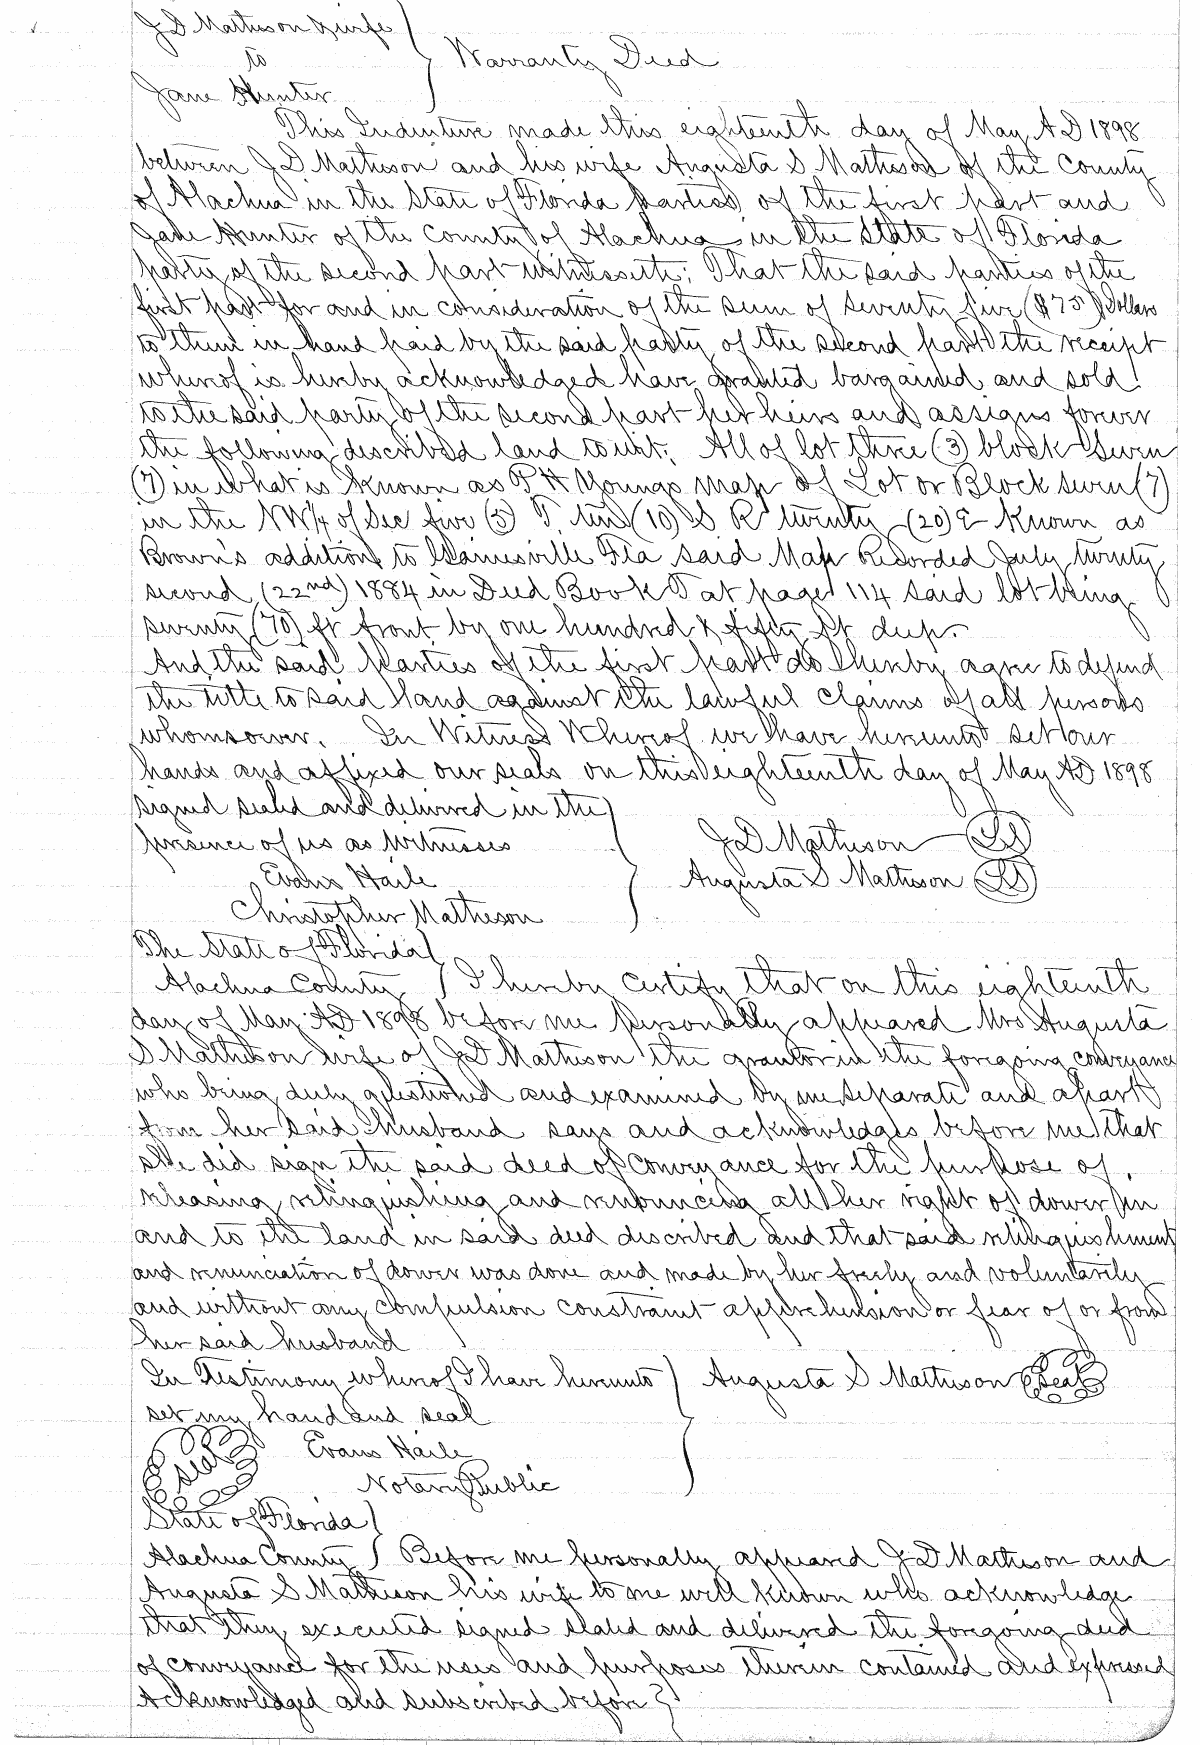 J D Matheson & wife
to } Warranty Deed
Jane Hunter
This Indenture made this eighteenth day of May A D 1898
between J D Matheson and his wife Augusta S Matheson of the County
of Alachua in the State of Florida parties of the first part and
Jane Hunter of the County of Alachua in the State of Florida
party of the second part witnesseth; That the said parties of the
first part for and in consideration of the sum of seventy five ($75) Dollars
to them in hand paid by the said party of the second part the receipt
whereof is hereby acknowledged have granted bargained and sold
to the said party of the second part her heirs and assigns forever
the following described land to wit; All of lot three (3) block seven
(7) in what is known as P H Youngs map of Lot or Block seven (7)
in the NW/4 of Sec five (5) T ten (10) S R twenty (20) E known as
Brown's addition to Gainesville Fla said Map Recorded July twenty
second (22nd) 1884 in Deed Book T at page 114 said lot being
seventy (70) ft front by one hundred & fifty ft deep.
And the said parties of the first part do hereby agree to defend
the title to said land against the lawful claims of all persons
whomsoever. In Witness Whereof we have hereunto set our
hands and affixed our seals on this eighteenth day of May AD 1898
signed sealed and delivered in the }
presence of us as witnesses J D Matheson LS
Evans Haile Augusta S Matheson LS
Christopher Matheson
The State of Florida }
Alachua County } I hereby certify that on this eighteenth
day of May AD 1898 before me personally appeared Mrs Augusta
S Matheson wife of J D Matheson the grantor in the foregoing conveyance
who being duly questioned and examined by me separate and apart
from her said husband says and acknowledges before me that
she did sign the said deed of conveyance for the purpose of
releasing relinquishing and renouncing all her right of dower in
and to the land in said deed described and that said relinquishment
and renunciation of dower was done and made by her freely and voluntarily
and without any compulsion constraint apprehension or fear of or from
her said husband
In Testimony whereof I have hereunto } Augusta S Matheson Seal
set my hand and seal
seal Evans Haile
Notary Public
State of Florida }
Alachua County } Before me personally appeared J D Matheson and
Augusta S Matheson his wife to me well known who acknowledge
that they executed signed sealed and delivered the foregoing deed
of conveyance for the uses and purposes therein contained and expressed
Acknowledged and subscribed before }